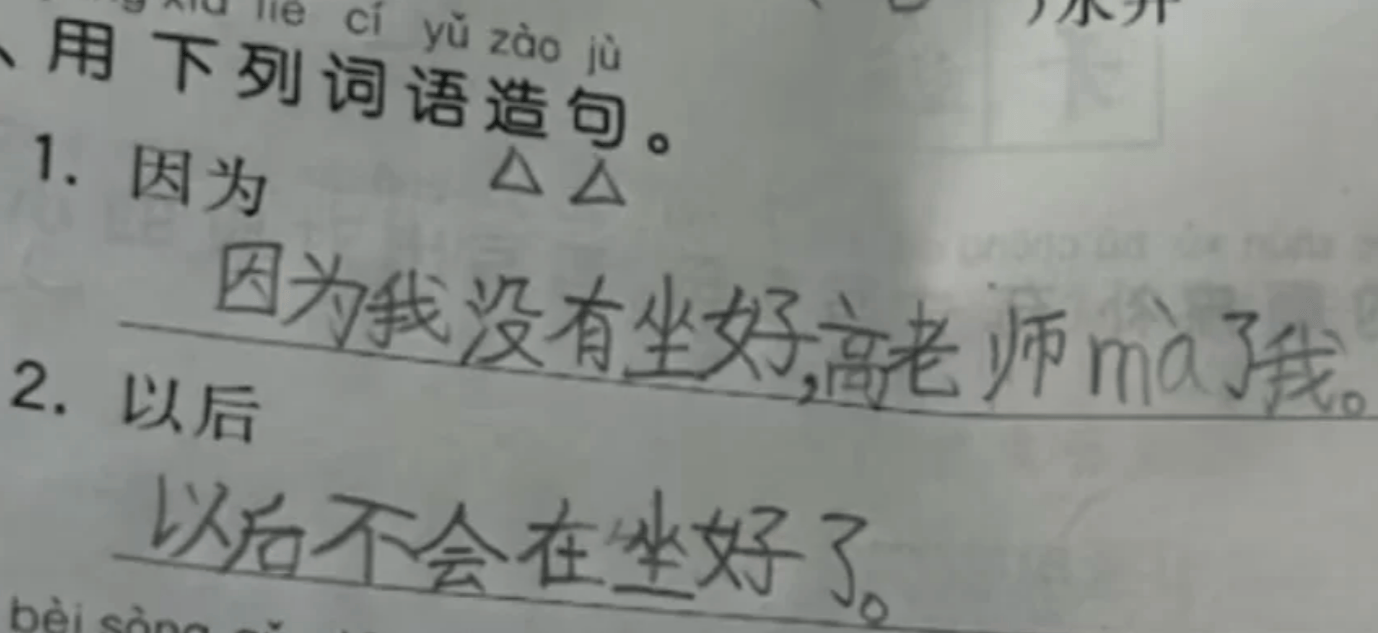 xià liè cí yǔ zào jù
、用下列词语造句。
1. 因为
因为我没有坐好,高老师mà了我。
2. 以后
以后不会在坐好了。